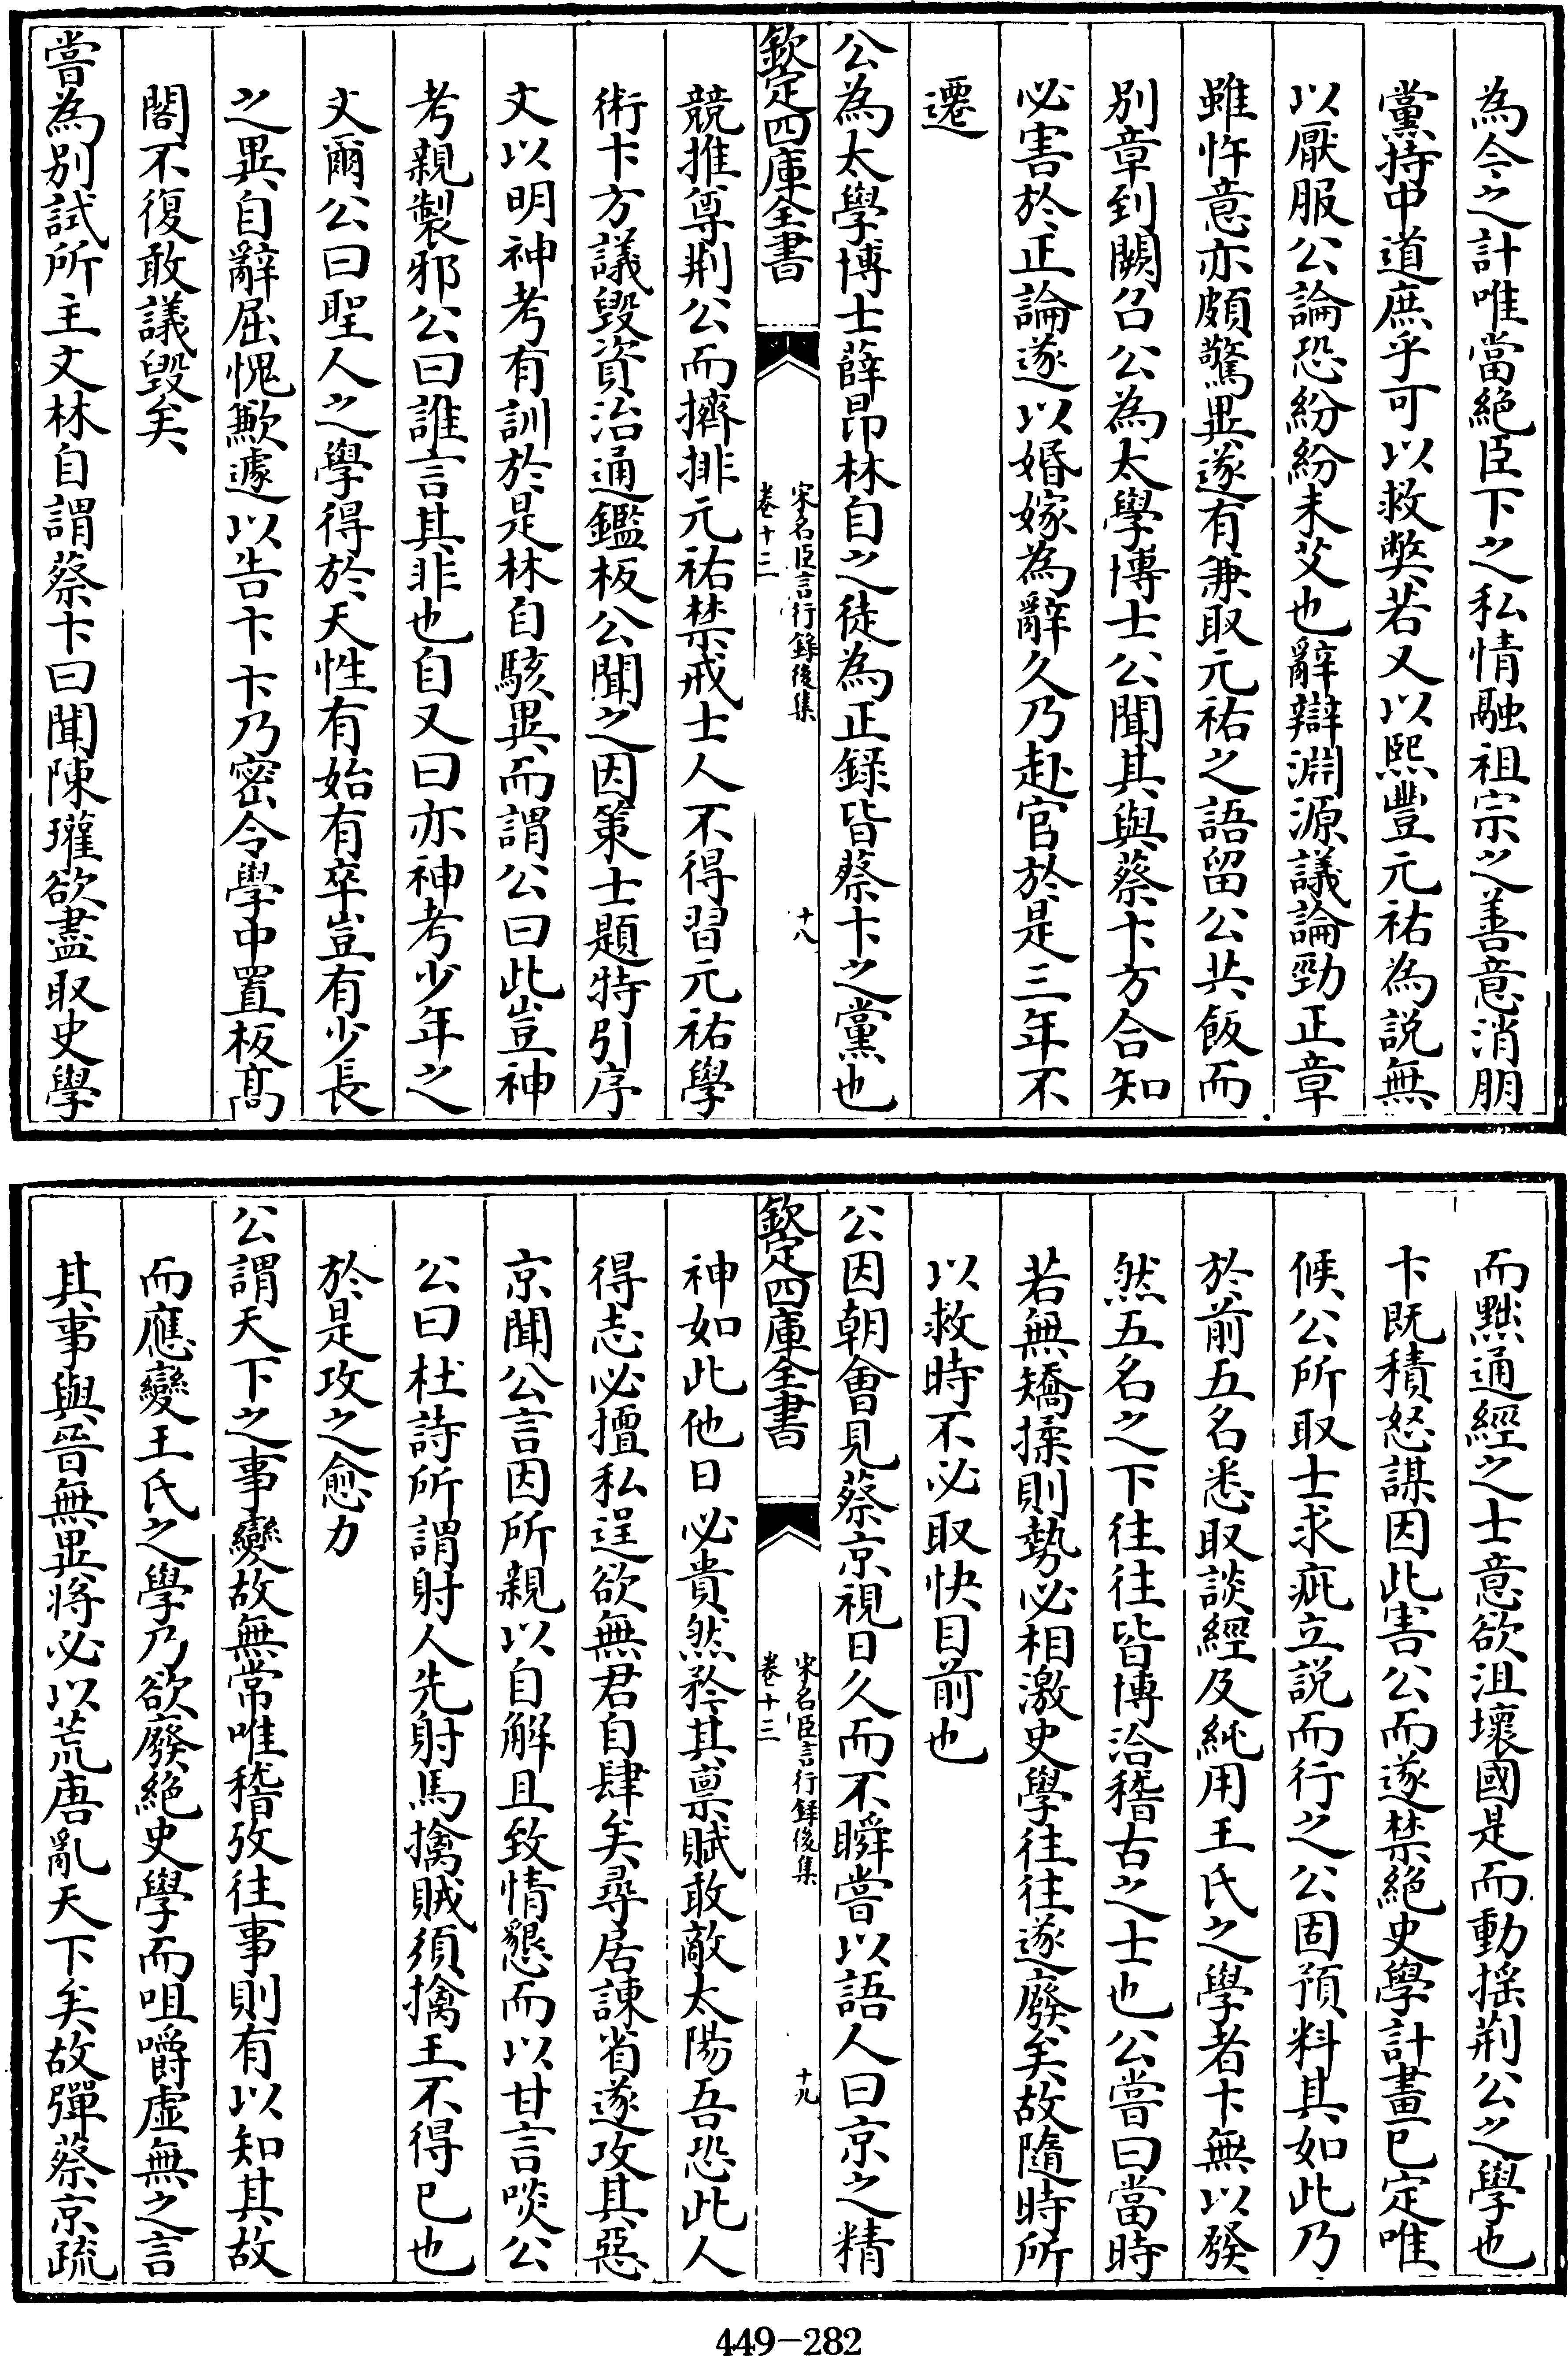 為今之計唯當絶臣下之私情融祖宗之善意消朋
黨持中道庶乎可以救弊若又以熙豐元祐為説無
以厭服公論恐紛紛未艾也辭辯淵源議論勁正章
雖忤意亦頗驚異遂有兼取元祐之語留公共飯而
别章到闕召公為太學博士公聞其與蔡卞方合知
必害於正論遂以婚嫁為辭久乃赴官於是三年不
遷
公為太學博士薛昂林自之徒為正録皆蔡卞之黨也
欽定四庫全書
宋名臣言行錄後集
卷十三
十八
競推尊荆公而擠排元祐禁戒士人不得習元祐學
術卞方議毁資治通鑑板公聞之因策士題特引序
文以明神考有訓於是林自駭異而謂公曰此豈神
考親製邪公曰誰言其非也自又曰亦神考少年之
文爾公曰聖人之學得於天性有始有卒豈有少長
之異自辭屈愧歉遽以告卞卞乃密令學中置板髙
閣不復敢議毁矣
嘗為别試所主文林自謂蔡卞曰聞陳瓘欲盡取史學
而黜通經之士意欲沮壞國是而動揺荆公之學也
卞既積怒謀因此害公而遂禁絶史學計畫已定唯
候公所取士求疵立説而行之公固預料其如此乃
於前五名悉取談經及純用王氏之學者卞無以發
然五名之下往往皆博洽稽古之士也公嘗曰當時
若無矯揉則勢必相激史學往往遂廢矣故隨時所
以救時不必取快目前也
公因朝會見蔡京視日久而不瞬嘗以語人曰京之精
欽定四庫全書
宋名臣言行錄後集
卷十三
十九
神如此他日必貴然矜其禀賦敢敵太陽吾恐此人
得志必擅私逞欲無君自肆矣尋居諫省遂攻其惡
京聞公言因所親以自解且致情懇而以甘言啖公
公曰杜詩所謂射人先射馬擒賊須擒王不得已也
於是攻之愈力
公謂天下之事變故無常唯稽攷往事則有以知其故
而應變王氏之學乃欲廢絶史學而咀嚼虚無之言
其事與晉無異將必以荒唐亂天下矣故彈蔡京疏
449-282